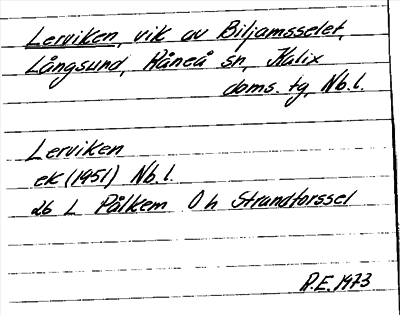 Lerviken, vik av Biljamsselet,
Långsund, Råneå sn, Kalix
doms. tg, Nb.l.
Lerviken
ek (1951) Nb.l.
26 L Pålkem 0 h Strandforssel
R.E. 1973